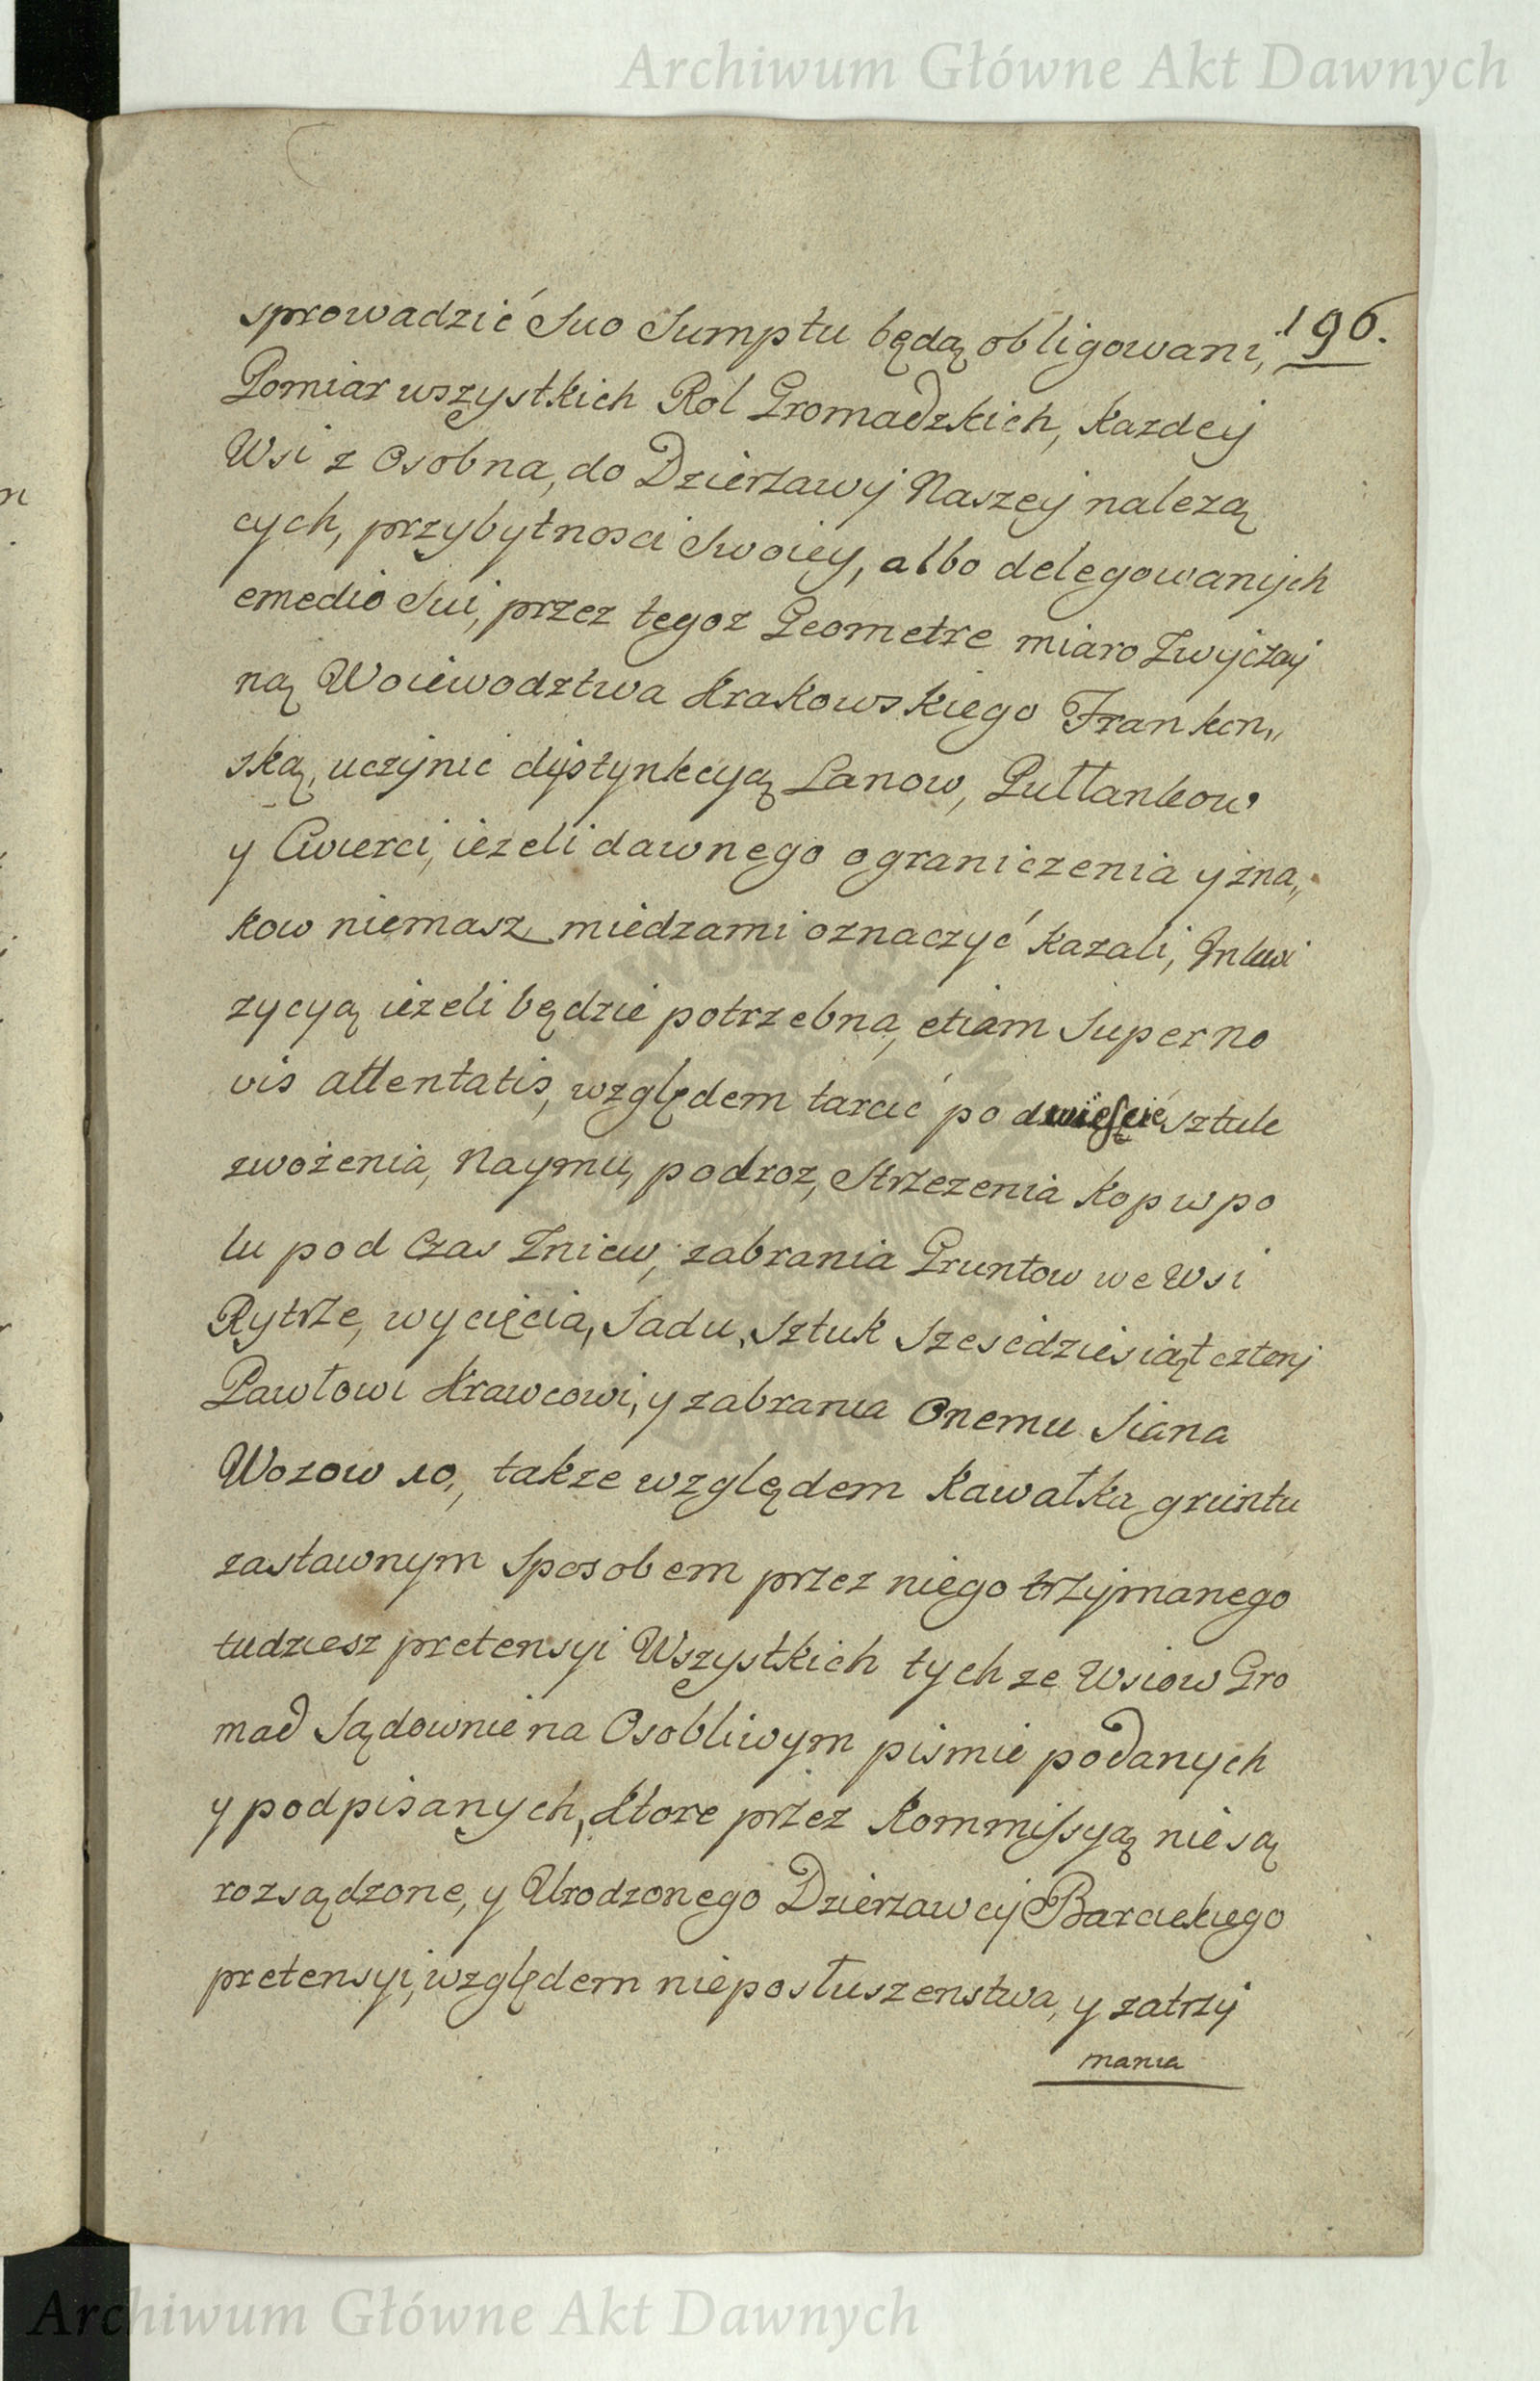 Archiwum Główne Akt Dawnych
196.
sprowadzić Suo Sumptu będą obligowani,
Pomiar wszystkich Rol Gromadzkich, kazdey
Wsi z Osobna, do Dzierzawy Naszey nalezą
cych, przybytnosci Swoiey, albo delegowanych
emedio Sui, przez tegoz Geometre miaro Zwyczay
ną Woiewodztwa Krakowskiego Frankon„
ską, uczynic dystynkcyą Lanow, Pułłankow
y Cwierci, iezeli dawnego ograniczenia y zna„
kow niemasz miedzami oznaczyć kazali, Inkwi
zycyą iezeli będzie potrzebna, etiam Super no
vis attentatis, względem tarcić po dwieście sztuk
zwożenia, Naymu, podroz, Strzezenia kop w po
lu pod Czas Zniew, zabrania Gruntow we Wsi
Rytrze, wycięcia, Sadu, Sztuk Szescdziesiąt cztery
Pawłowi Krawcowi, y zabrania Onemu Siana
Wozow 10, takze względem kawałka gruntu
zastawnym Sposobem przez niego trzymanego
tudziesz pretensyi Wszystkich tychze Wsiow Gro
mad Sądownie na Osobliwym pismie podanych
y podpisanych, Ktore przez Kommissyą nie są
rozsądzone, y Urodzonego Dzierzawcy Barcickiego
pretensyi, względem nieposłuszenstwa, y zatrzy
mania
Archiwum Główne Akt Dawnych